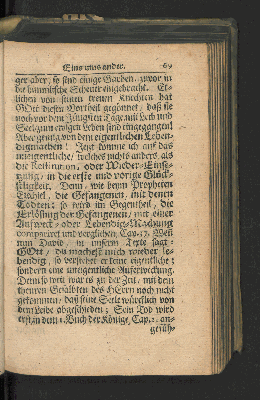 Eins ums ander. 69
ger aber, so sind einige Garben, zuvor in
die himmlische Scheuer eingebracht. Et-
lichen von seinen treuen Knechten hat
GOtt diesen Vortheil gegönnet, daß sie
noch vor dem Jüngsten Tage mit Leib und
Seel zum ewigen Leben sind eingegangen!
Aber genug von dem eigentlichen Leben-
digmachen! Jetzt komme ich auf das
uneigentliche, welches nichts anders, als
die Restitution, oder Wieder-Einse-
tzung, in die erste und vorige Glück-
seligkeit. Denn, wie beym Propheten
Ezechiel, die Gefangenen, mit denen
Todten; so wird im Gegentheil, die
Erlösung der Gefangenen, mit einer
Auffweck- oder Lebendig-Machung
compariret und verglichen, Cap. 37. Weß
nun David, in unserm Texte sagt:
GOtt, du machest mich wieder le-
bendig, so verstehet er keine eigentliche;
sondern eine uneigentliche Aufferweckung.
Denn so weit war es zu der Zeit, mit dem
theuren Gesalbten des HErrn noch nicht
gekommen, daß seine Seele würcklich von
dem Leibe abgeschieden; Sein Tod wird
erst in dem 1. Buch der Könige, Cap. 2. an-
geführ-